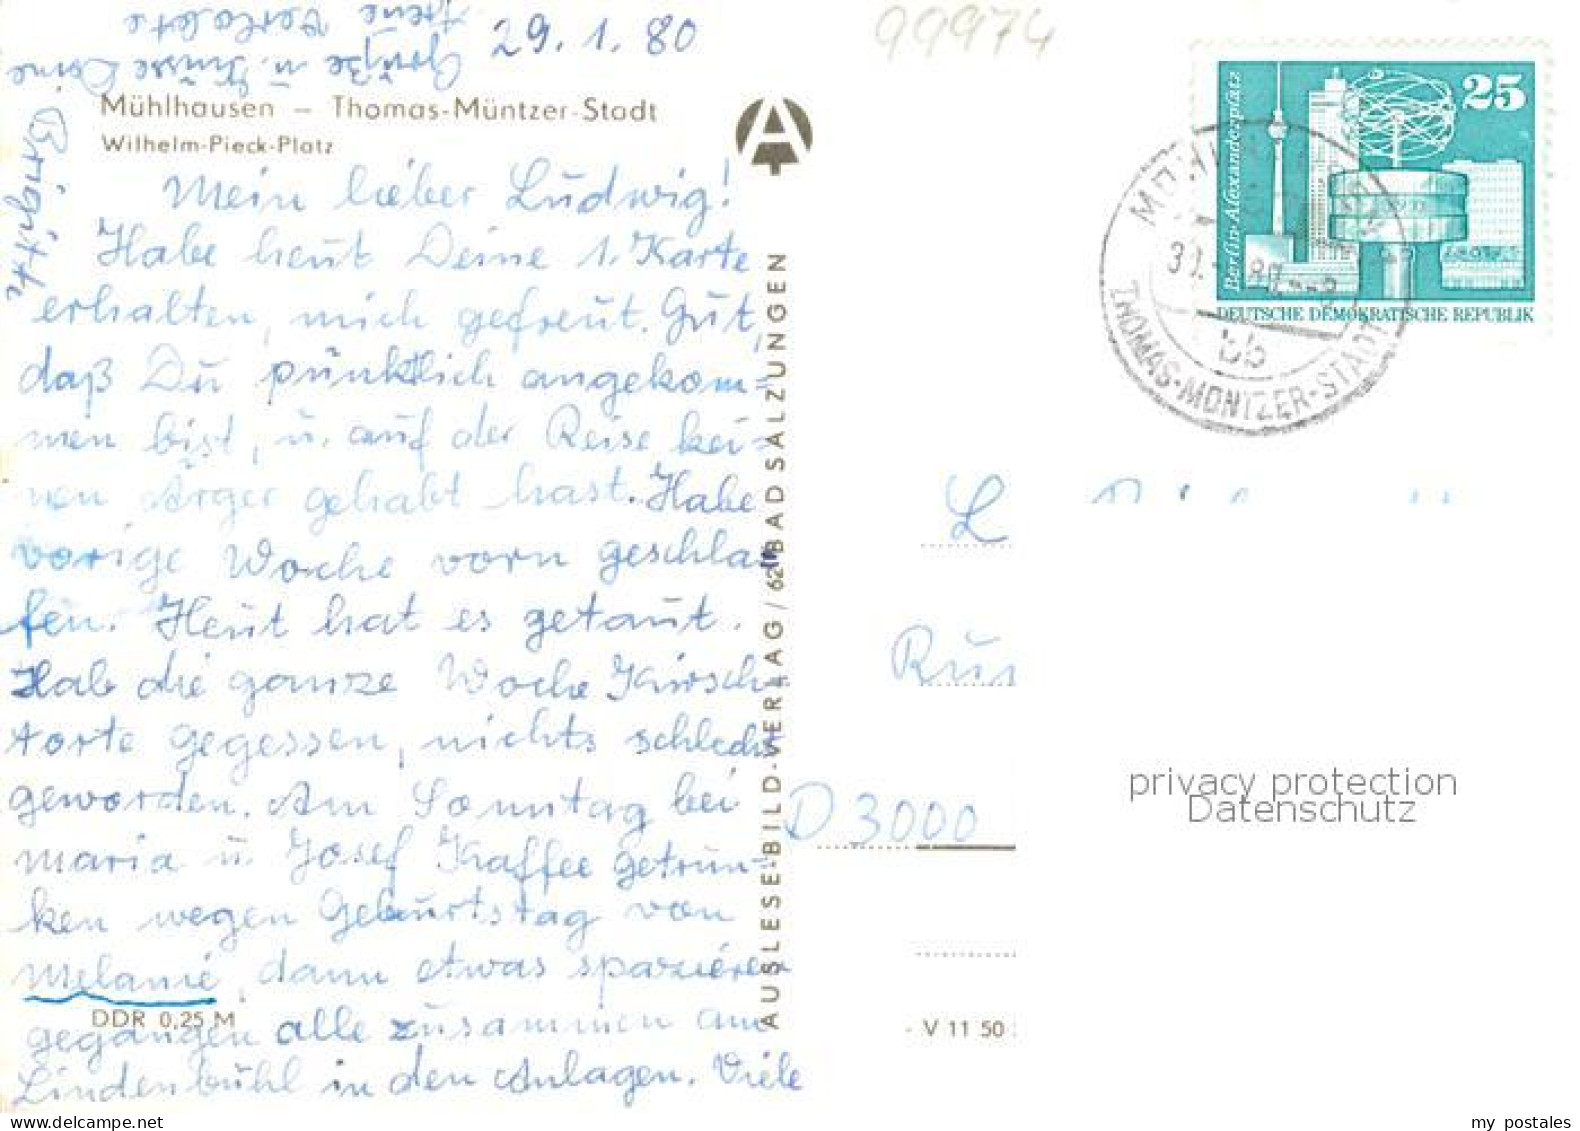 29. 1. 80
99974
Mühlhausen – Thomas-Müntzer-Stadt
Wilhelm-Pieck-Platz
Mein lieber Ludwig!
Habe heut Deine 1. Karte
erhalten, mich gefreut. Gut,
daß Du pünktlich angekom=
men bist, u. auf der Reise kei=
nen Ärger gehabt hast. Habe
vorige Woche vorn geschla
fen. Heut hat es getaut.
Hab die ganze Woche Kirsch
torte gegessen, nichts schlecht
geworden. Am Sonntag bei
Maria u. Josef Kaffee getrun=
ken wegen Geburtstag von
Melanie, dann etwas spazieren
gegangen alle zusammen am
Lindenbühl in den Anlagen. Viele
Grüße u. Küsse Deine
Brigitte
DDR 0,25 M
AUSLESE-BILD-VERLAG / 62 BAD SALZUNGEN
25
Berlin-Alexanderplatz
DEUTSCHE DEMOKRATISCHE REPUBLIK
THOMAS-MÜNTZER-STADT
bb
D 3000
V 11 50
privacy protection
Datenschutz
my postales